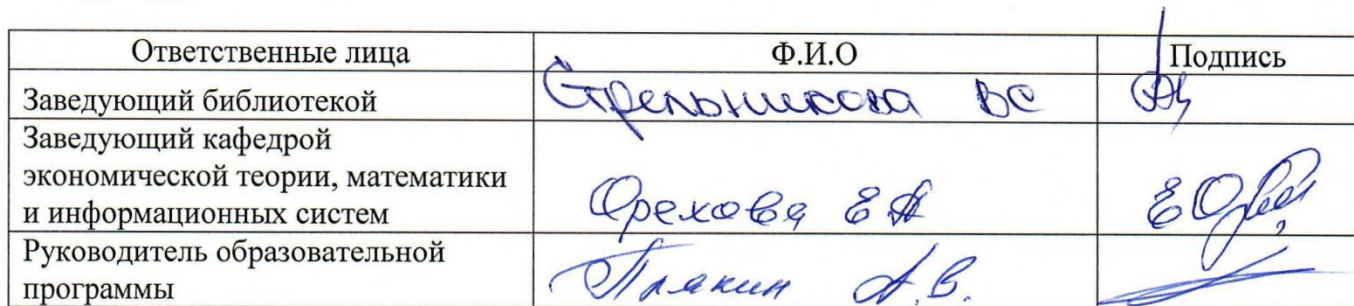 Ответственные лица Ф.И.О Подпись
Заведующий библиотекой Стрельникова ВС
Заведующий кафедрой
экономической теории, математики
и информационных систем Орехова ЕА
Руководитель образовательной
программы Плякин А.В.